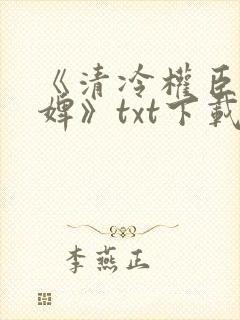 《清冷權臣
婢》txt下載
李燕正